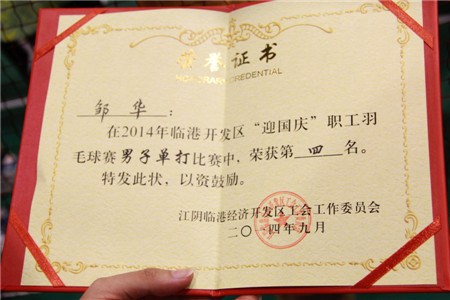 荣誉证书
HONORARY CREDENTIAL
邹 华：
在2014年临港开发区“迎国庆”职工羽
毛球赛男子单打比赛中，荣获第 四 名。
特发此状，以资鼓励。
江阴临港经济开发区工会工作委员会
二〇一四年九月